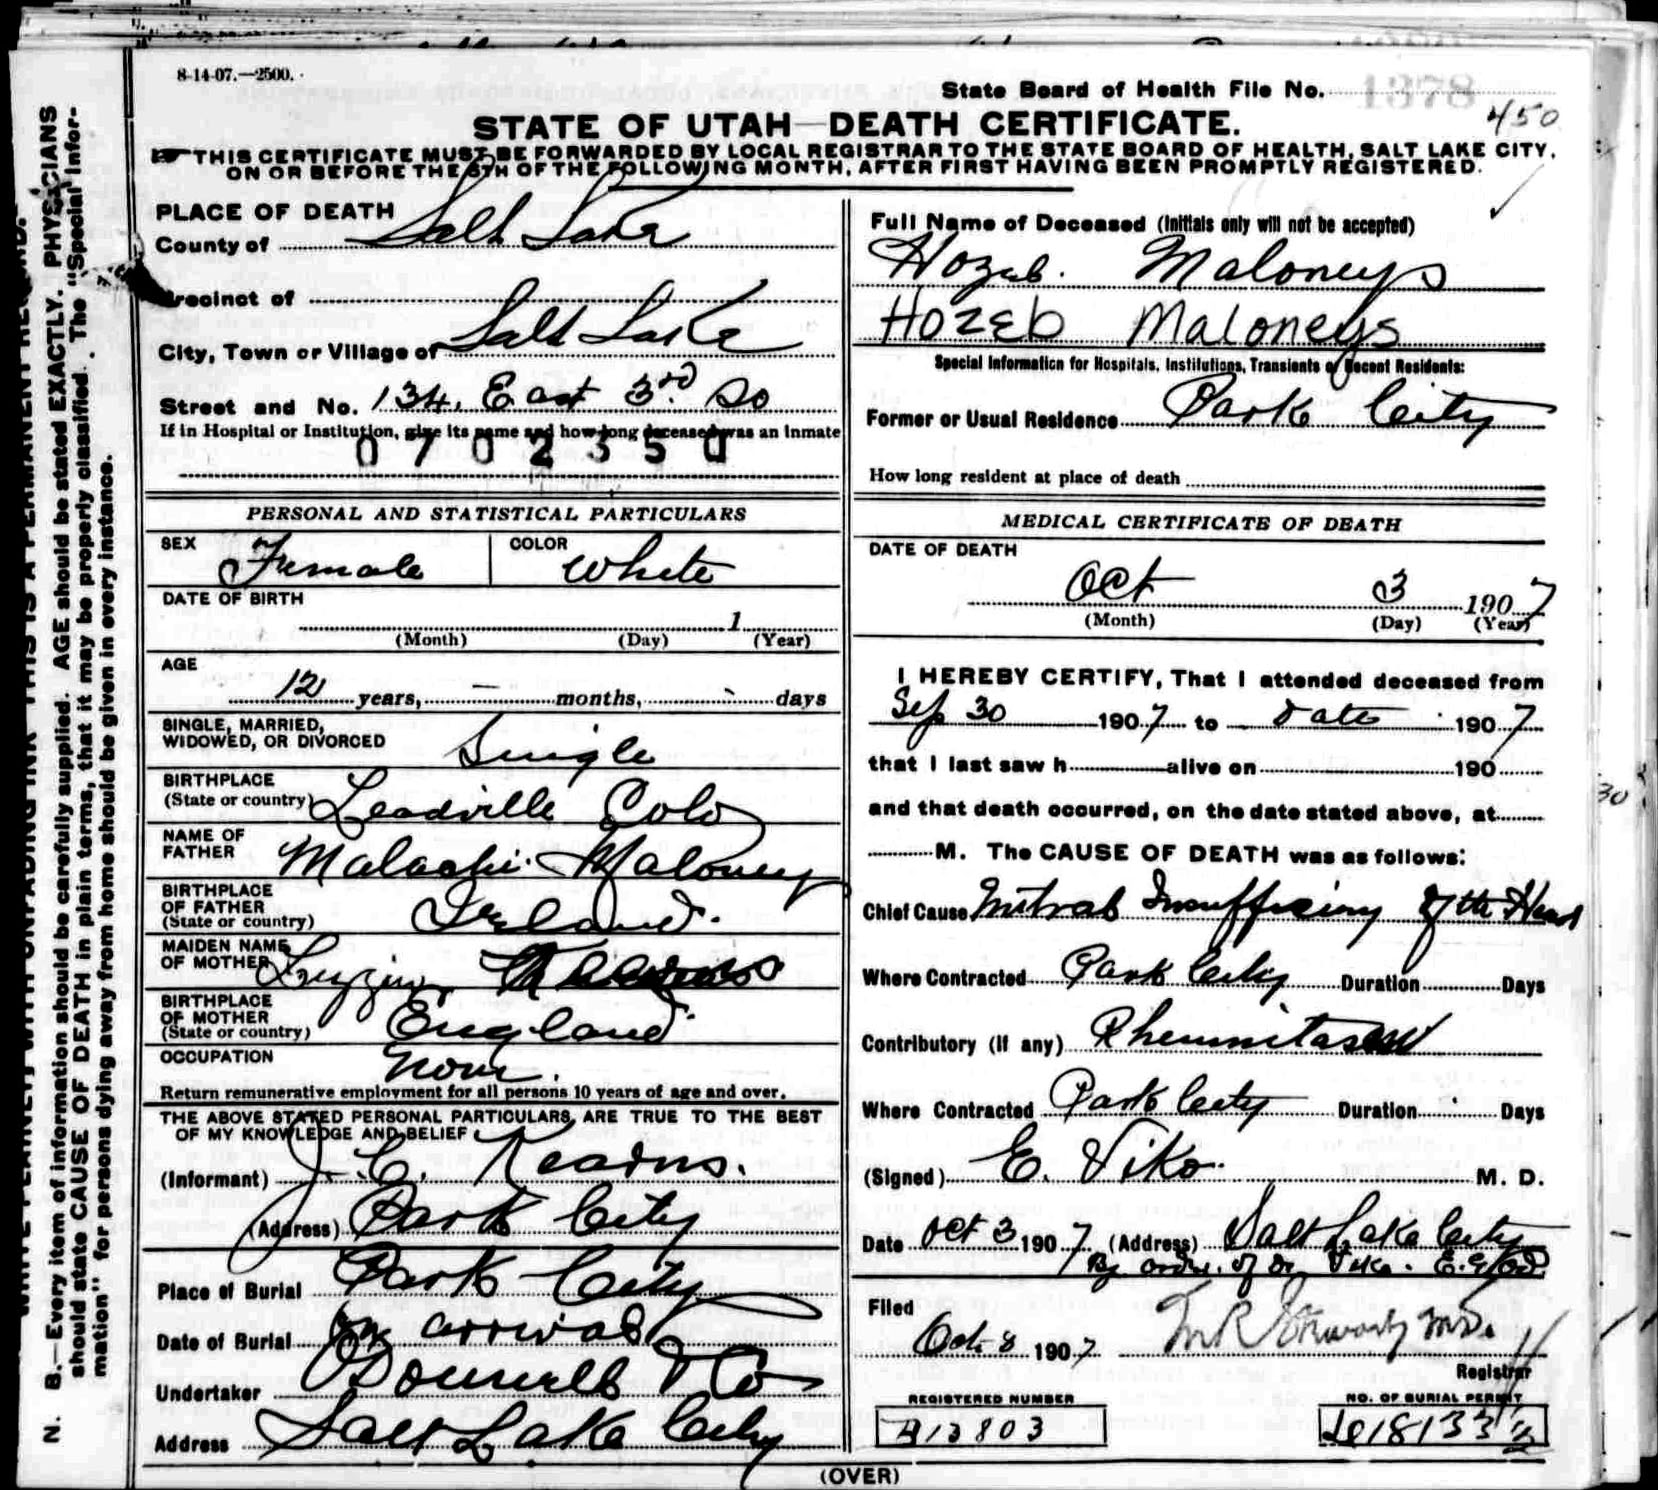 8-14-07.—2500.
State Board of Health File No. 1378
450
STATE OF UTAH—DEATH CERTIFICATE.
THIS CERTIFICATE MUST BE FORWARDED BY LOCAL REGISTRAR TO THE STATE BOARD OF HEALTH, SALT LAKE CITY,
ON OR BEFORE THE 5TH OF THE FOLLOWING MONTH, AFTER FIRST HAVING BEEN PROMPTLY REGISTERED.
PLACE OF DEATH
County of Salt Lake
Precinct of
City, Town or Village of Salt Lake
Street and No. 134. East 3rd So
If in Hospital or Institution, give its name and how long deceased was an inmate
0702350
Full Name of Deceased (Initials only will not be accepted)
Hozeb. Maloneys
Hozeb Maloneys
Special Information for Hospitals, Institutions, Transients or Recent Residents:
Former or Usual Residence Park City
How long resident at place of death
PERSONAL AND STATISTICAL PARTICULARS
SEX Female COLOR White
DATE OF BIRTH
1
(Month) (Day) (Year)
AGE
12 years, — months, - days
SINGLE, MARRIED,
WIDOWED, OR DIVORCED Single
BIRTHPLACE
(State or country) Leadville Colo
NAME OF
FATHER Malachi Maloney
BIRTHPLACE
OF FATHER
(State or country) Ireland.
MAIDEN NAME
OF MOTHER
BIRTHPLACE
OF MOTHER
(State or country) England
OCCUPATION None.
Return remunerative employment for all persons 10 years of age and over.
THE ABOVE STATED PERSONAL PARTICULARS ARE TRUE TO THE BEST
OF MY KNOWLEDGE AND BELIEF
(Informant) J. C. Kearns.
(Address) Park City
Place of Burial Park City
Date of Burial On arrival
Undertaker O'Donnell & Co
Address Salt Lake City
MEDICAL CERTIFICATE OF DEATH
DATE OF DEATH
Oct 3 1907
(Month) (Day) (Year)
I HEREBY CERTIFY, That I attended deceased from
Sep 30 1907 to date 1907
that I last saw h alive on 190
and that death occurred, on the date stated above, at
M. The CAUSE OF DEATH was as follows:
Chief Cause Mitral Insufficiency of the Heart
Where Contracted Park City Duration Days
Contributory (if any)
Where Contracted Park City Duration Days
(Signed) E. Viko. M. D.
Date Oct 3 1907 (Address) Salt Lake City
By order of Dr Viko.
Filed
Oct 8 1907
Registrar
REGISTERED NUMBER
NO. OF BURIAL PERMIT
(OVER)
30
N. B.—Every item of information should be carefully supplied. AGE should be stated EXACTLY. PHYSICIANS
should state CAUSE OF DEATH in plain terms, that it may be properly classified. The "Special Infor-
mation" for persons dying away from home should be given in every instance.
WRITE PLAINLY WITH UNFADING INK—THIS IS A PERMANENT RECORD.